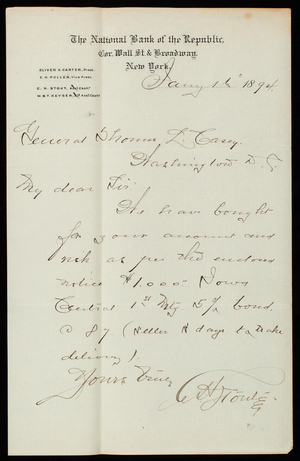 The National Bank of the Republic,
Cor. Wall St & Broadway.
New York,
OLIVER S. CARTER, Prest.
E. H. PULLEN, Vice Prest.
C. H. STOUT, Asst Cash'r
W. B. T. KEYSER, 2nd Asst Cash'r
Jany 1894
General Thomas L. Casey.
Washington D. C.
My dear Sir:
We have bought
for your account and
risk as per the enclosed
notice $1,000 Iowa
Central 1st Mtg 5% bond.
@ 87 (seller days to make
delivery).
Yours truly
C H Stout